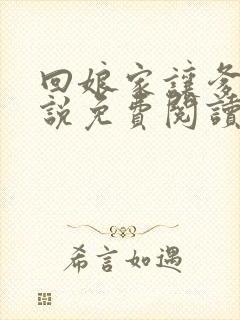 回娘家讓爹
說免費閱讀
希言如遇